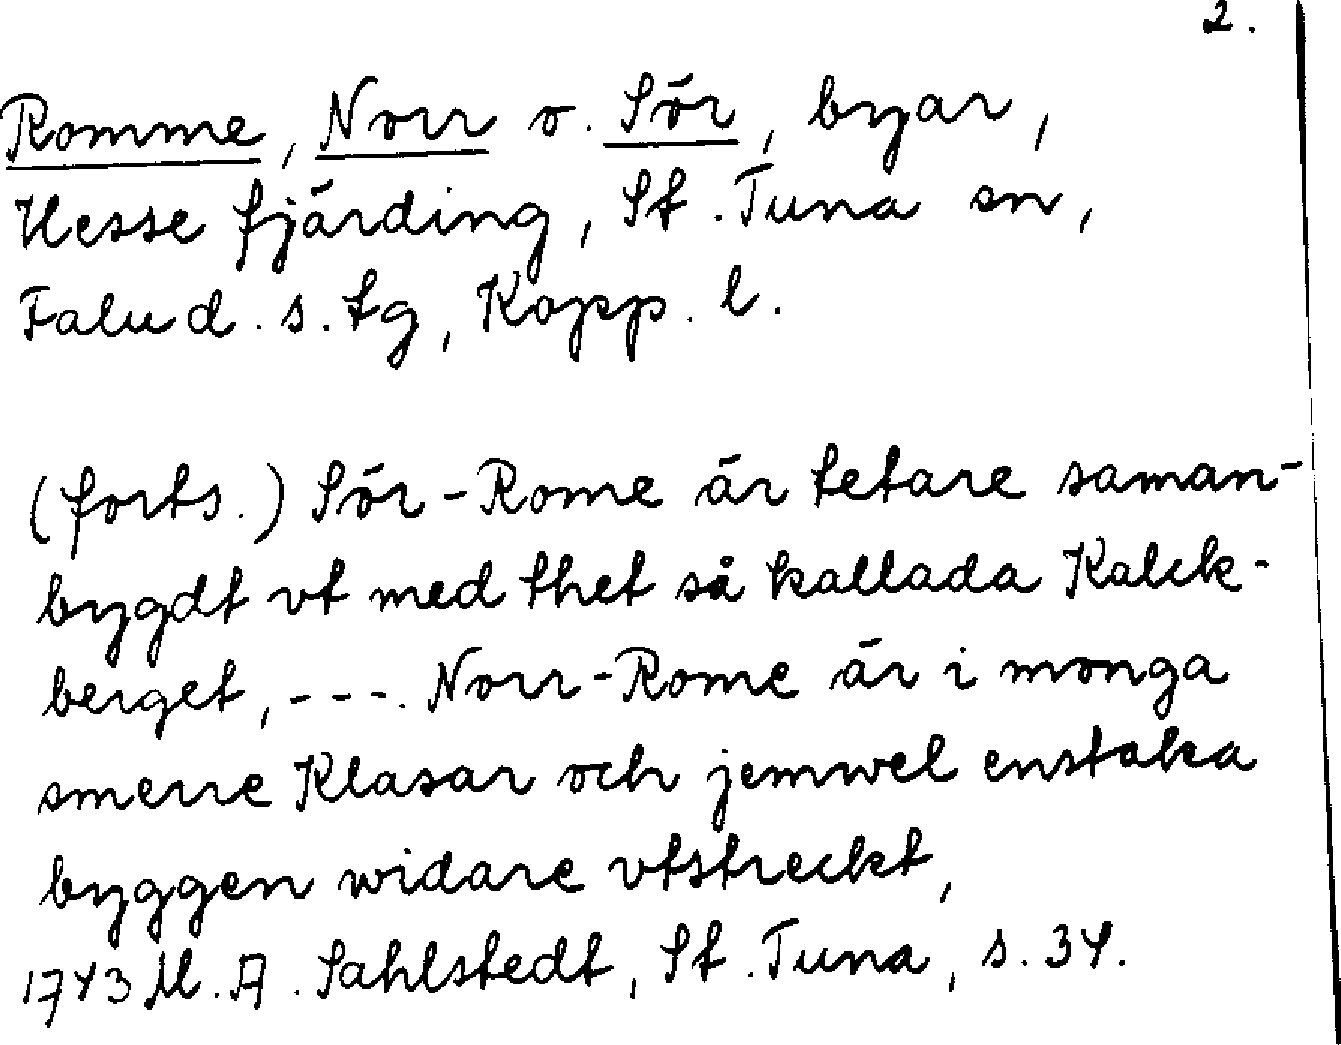 2.
Romme, Norr o. Sör, byar,
Uesse fjärding, St. Tuna sn,
Falu d. s. tg, Kopp. l.
(forts.) Sör-Rome är tetare saman-
bygdt vt med thet så kallada Kalck-
berget, ---. Norr-Rome är i monga
smerre Klasar och jemwel enstaka
byggen widare vtstreckt,
1743 M. A. Sahlstedt, St. Tuna, s. 34.